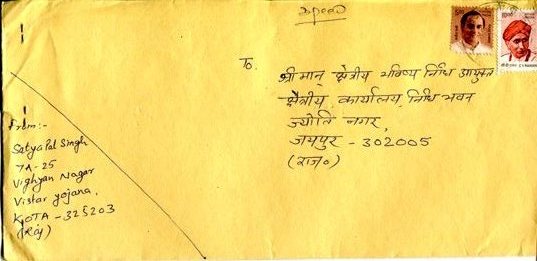 Speed
To.
श्रीमान् क्षेत्रीय भविष्य निधि आयुक्त
क्षेत्रीय, कार्यालय, निधि भवन
ज्योति नगर,
जयपुर - 302005
(राज०)
From:-
Satyapal Singh
7A-25
Vighyan Nagar
Vistar yojana.
KOTA - 325203
(Raj)